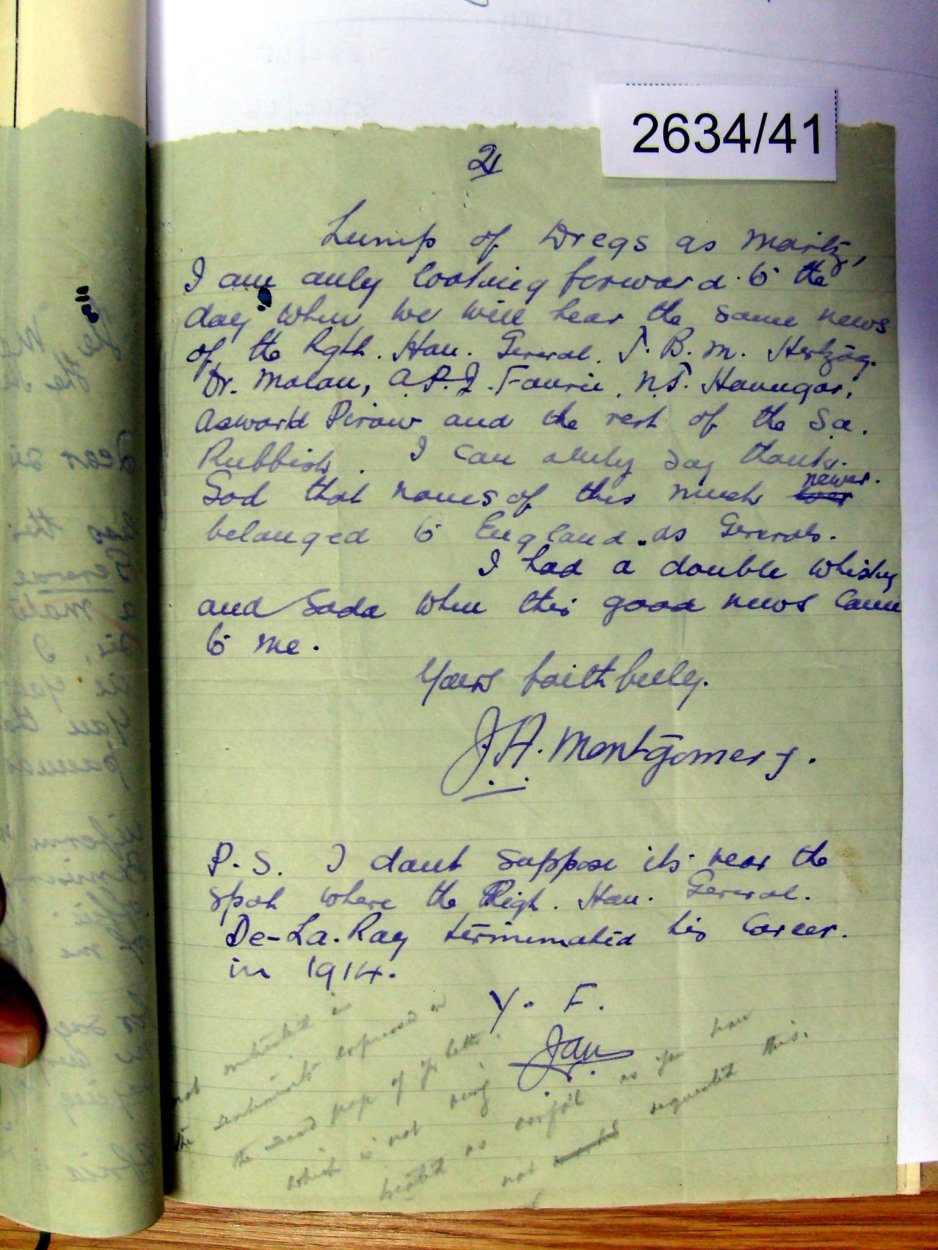 2634/41
2/
Lump of Dregs as Maritz,
I am anly looking forward to the
day when we will hear the same news
of the Rgth. Han. General. J. B. M. Hertzog.
Dr. Malan, A.P.J. Fourie, N.J. Havngar,
Asward Pirow and the rest of the S.a.
Rubbish. I can anly say thank.
God that nones of this much never.
belanged to England. as Generals.
I had a double whisky
and Soda when this good news came
to me.
Yours faithfully.
J.A. Montgomery.
P.S. I dant suppose its near the
spot where the Righ. Han. General.
De-La-Ray terminated his Career.
in 1914.
Y. F.
Jan
not interested in
the sentiments expressed on
the second page of yr letter.
which is not being
treated as as you have
not requested this.